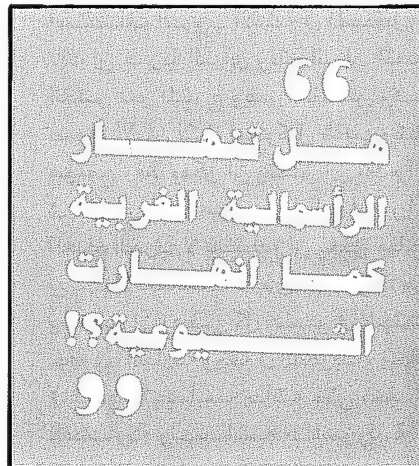 “
هل تنهار
الرأسمالية الغربية
كما انهارت
الشيوعية؟!
”